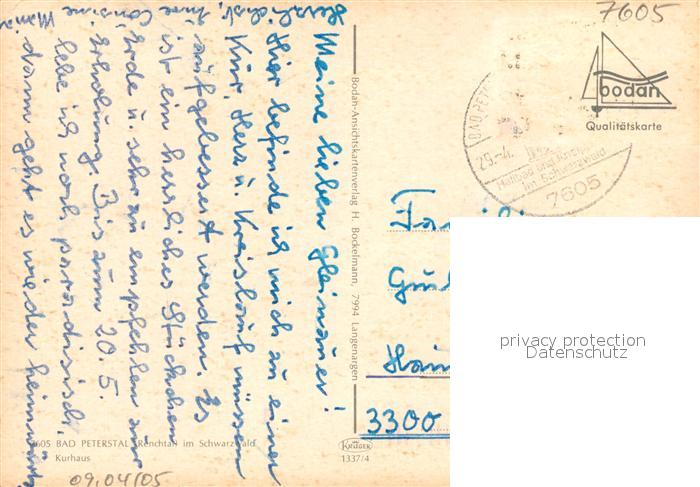 Meine lieben Gleinauer!
Hier befinde ich mich zu einer
Kur, Herz u. Kreislauf müssen
aufgebessert werden. Es
ist ein herrliches Stückchen
Erde u. sehr zu empfehlen zur
Erholung. Bis zum 20.5.
lebe ich noch paradiesisch,
dann geht es wieder heimwärts
Herzlichst, Eure Cousine Maria
Bodan-Ansichtskartenverlag H. Bockelmann, 7994 Langenargen
7605
bodan
Qualitätskarte
BAD PETERS
29.-4.
Heilbad und Kneipp
im Schwarzwald
7605
Hain
3300
privacy protection
Datenschutz
7605 BAD PETERSTAL (Renchtal) im Schwarzwald
Kurhaus
KRÜGER
1337/4
09.04/05